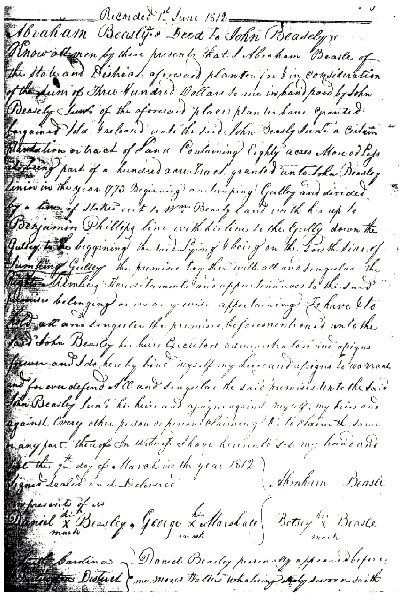 Recorded 1st June 1812
Abraham Beasly's Deed to John Beasely
Know all men by these presents that I Abraham Beasle of
the State and District aforesaid planter for & in consideration
of the sum of Three Hundred Dollars to me in hand paid by John
Beasly Junr of the aforesaid place planter have granted
bargained sold released unto the said John Beasly Junr a certain
plantation or tract of Land Containing Eighty acres More or Less
being part of a hundred acre Tract granted unto John Beasley
Senior in the year 1773 Beginning Gulley and divided
by a line of stakes Beasly Land with his up to
Benjamin Phillips line with his line to the Gulley down the
Gulley to the beginning the said lying & being on the South side of
Gulley the premises together with all and singular the
rights members hereditaments and appurtenances to the said
premises belonging or in any wise appertaining To have & to
hold all and singular the premises before mentioned unto the
said John Beasley his heirs Executors administrators and assigns
forever and I do hereby bind myself my heirs and assigns to warrant
and forever defend all and singular the said premises unto the said
John Beasley Junr his heirs and assigns against myself my heirs and
against Every other person or persons claiming or to claim the same
or any part thereof In witness I have hereunto set my hand and
seal the 7th day of March in the year 1812
Signed sealed and Delivered Abraham Beasle
in presents of us
Daniel X Beasley George his X Marshall Betsey X Beasle
mark mark mark
Carolina Daniel Beasley personally appeared before
District me Moses duly sworn saith